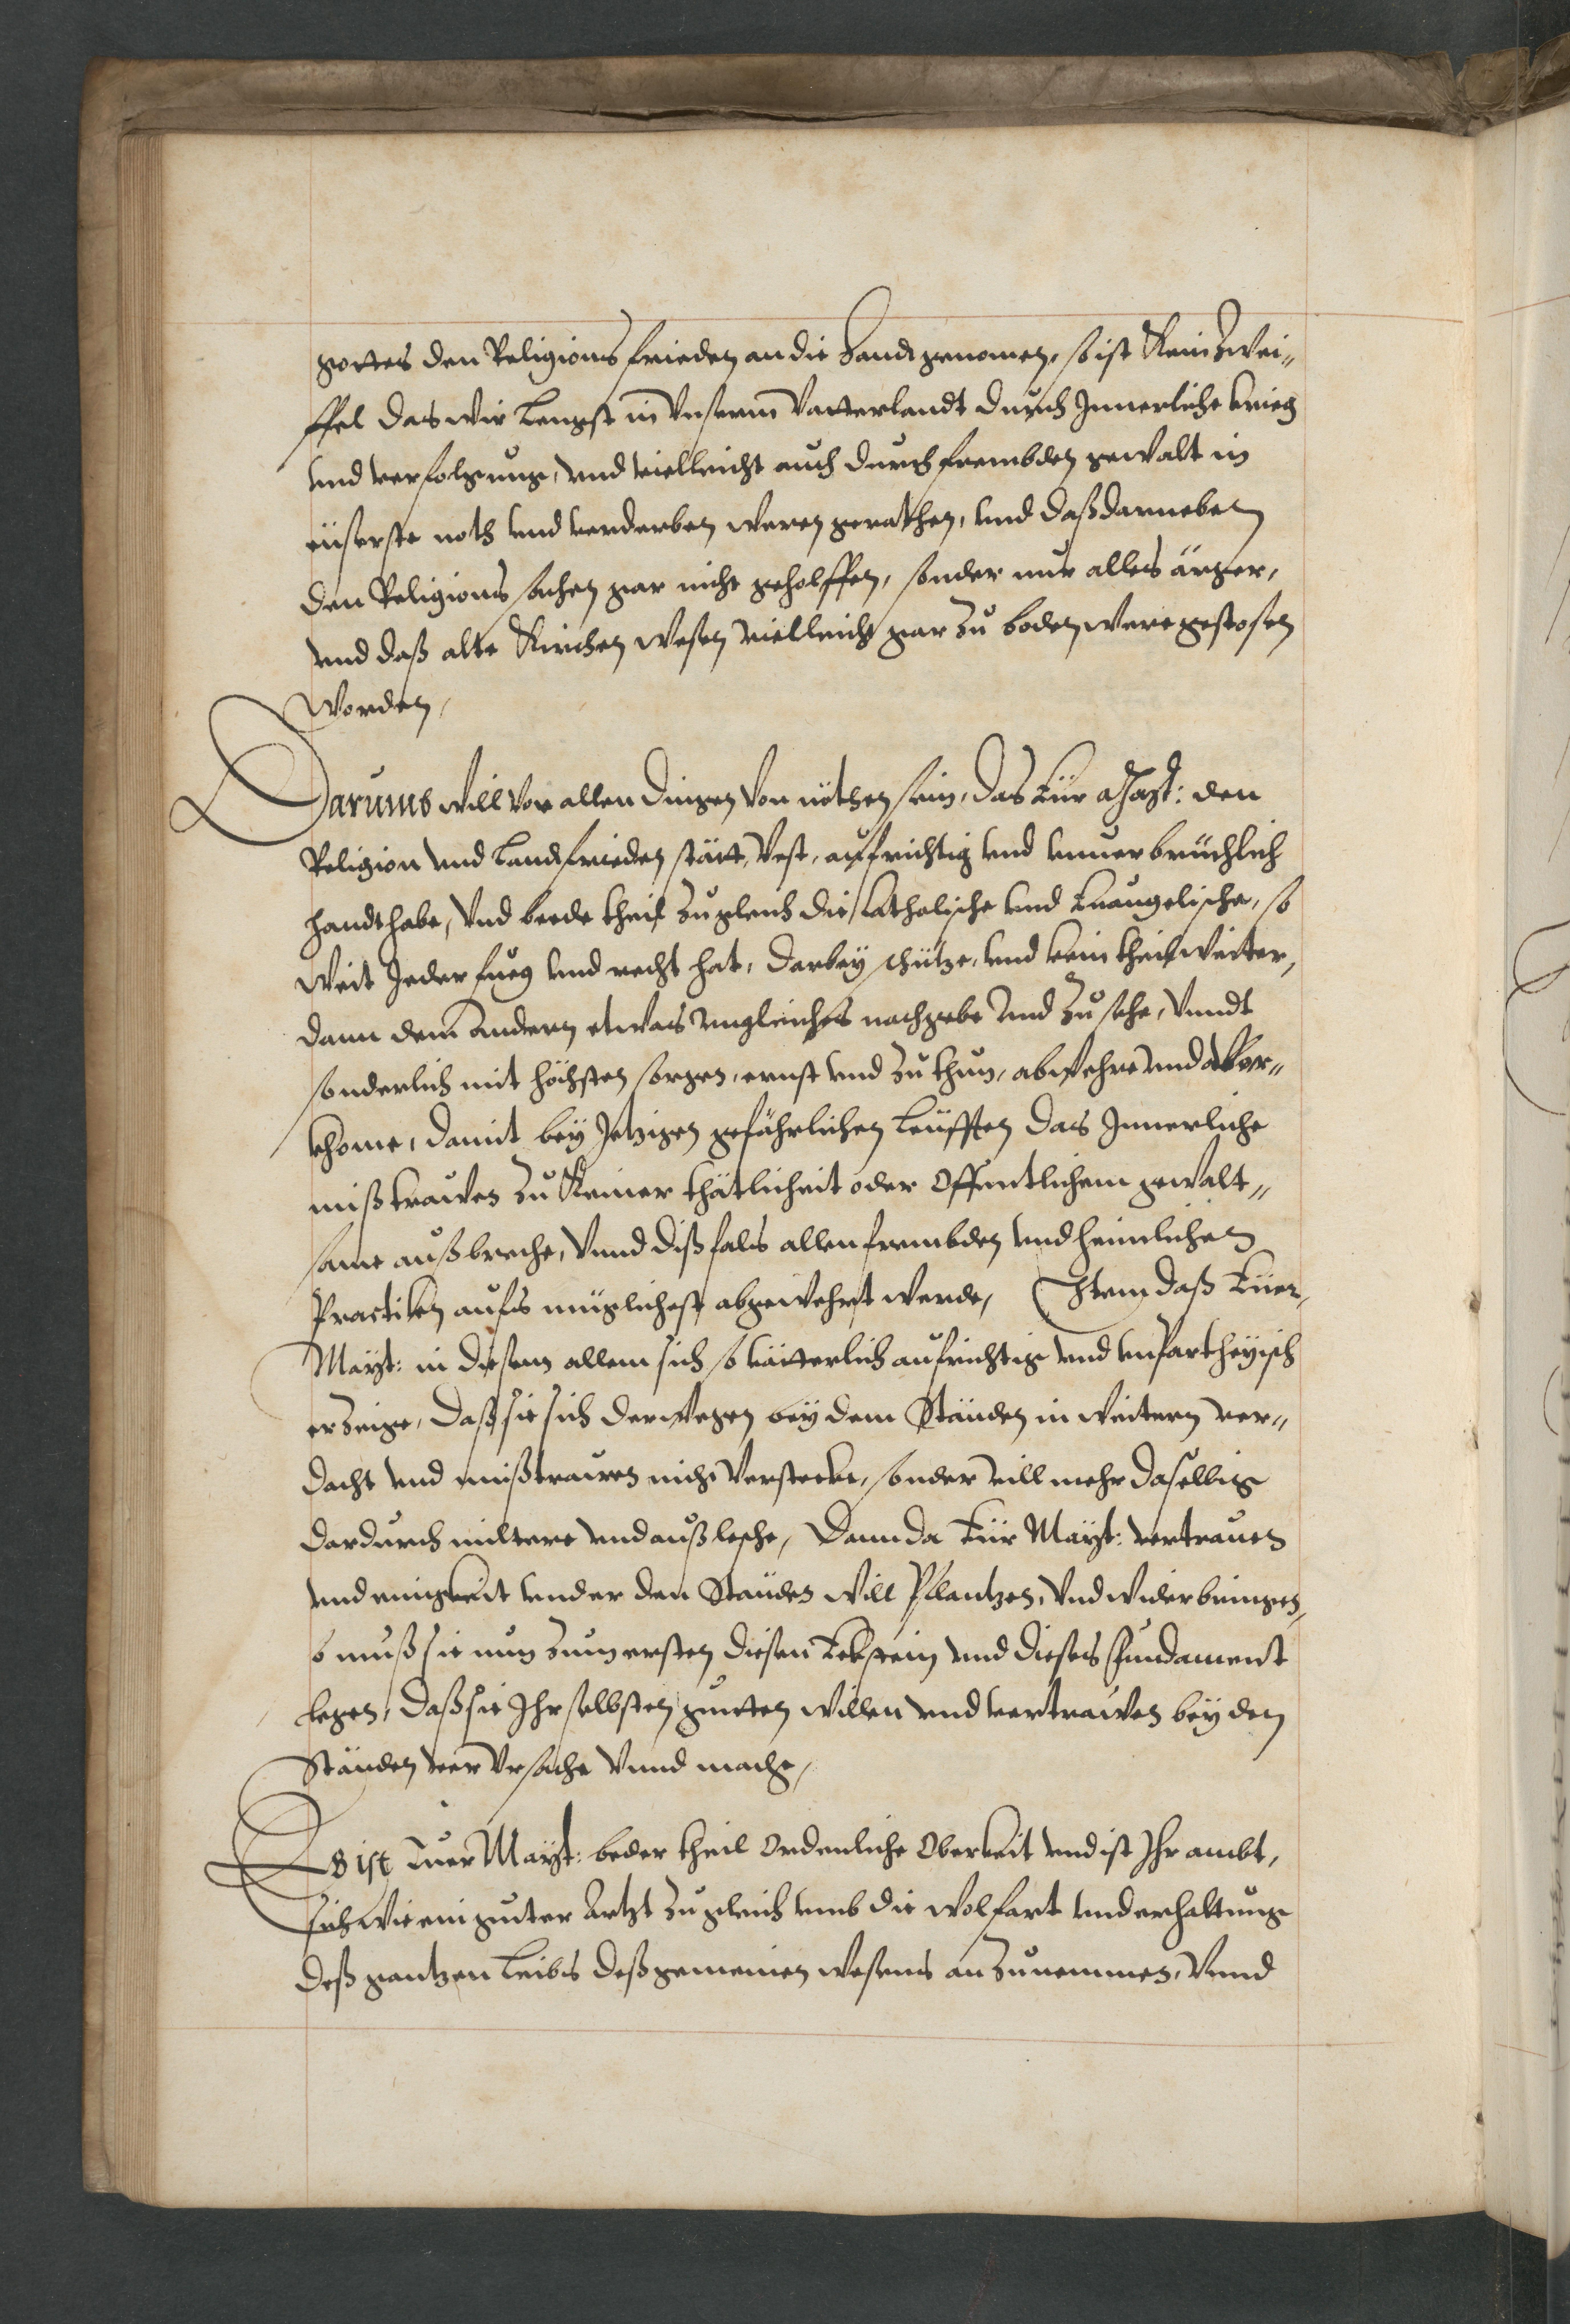 gottes den Religions frieden an die Handt genomen, so ist Kein Zwei„
ffel das wir Lengst in Vnserm Vatterlandt durch Innerliche krieg
vnd verfolgung, vnd vielleicht auch durch frembden gewalt in
eüserste noth vnd verderben weren gerathen, vnd daß darneben
den Religions sachen gar nicht geholffen, sonder nur alles ärger,
vnd daß alte Kirchen wesen vielleicht gar zu boden were gestosen
worden,
Darumb will vor allen dingen von nöthen sein, das Eür Mayt: den
Religion vnd Landfrieden stätt, Vest, aufrichtig vnd vnuerbrüchlich
handthabe, Vnd beede theil zugleich die Catholische vnd Euangelische, so
weit Jeder fueg vnd recht hat, darbey schütze, vnd kein theil weiter,
dann dem andern etwas vngleiches nachgebe vnd zu sehe, Vnndt
sonderlich mit höchsten sorgen, ernst vnd zuthun, abwehre vnd vor„
khome, damit bey Jetzigen gefährlichen Leüfften das Innerliche
mißtrawen zu Keiner thätlicheit oder Offentlichem gewalt„
same außbreche, Vnnd dißfals allen frembden vnd heimlichen
Practiken aufs müglichest abgewehrt werde, Item daß Eüer
Mayt: in diesem allem sich so vätterlich aufrichtig vnd vnpartheyisch
erzeige, daß sie sich derwegen bey dem Ständen in weitern ver„
dacht vnd mißtrawen nicht Verstecke, sonder vill mehr dasellbig
dardurch miltere vnd außlesche, Dann da Eür Mayt: vertrauen
vnd einigkeit vnder den Ständen will Pflantzen, Vnd widerbringen,
so muß sie nun zum ersten diesen Eckstein vnd dieses fundament
legen, daß sie Ihr selbsten gutten willen vnd vertrawen bey den
Ständen ver Vrsache Vnnd mache,
Es ist Euer Mayt: beder theil Ordenliche Oberkeit vnd ist Ihr ambt,
sich wie ein gutter Artzt zugleich vmb die wolfart vnd erhaltung
deß gantzen Leibs deß gemeinen wesens anzunemmen, Vnnd